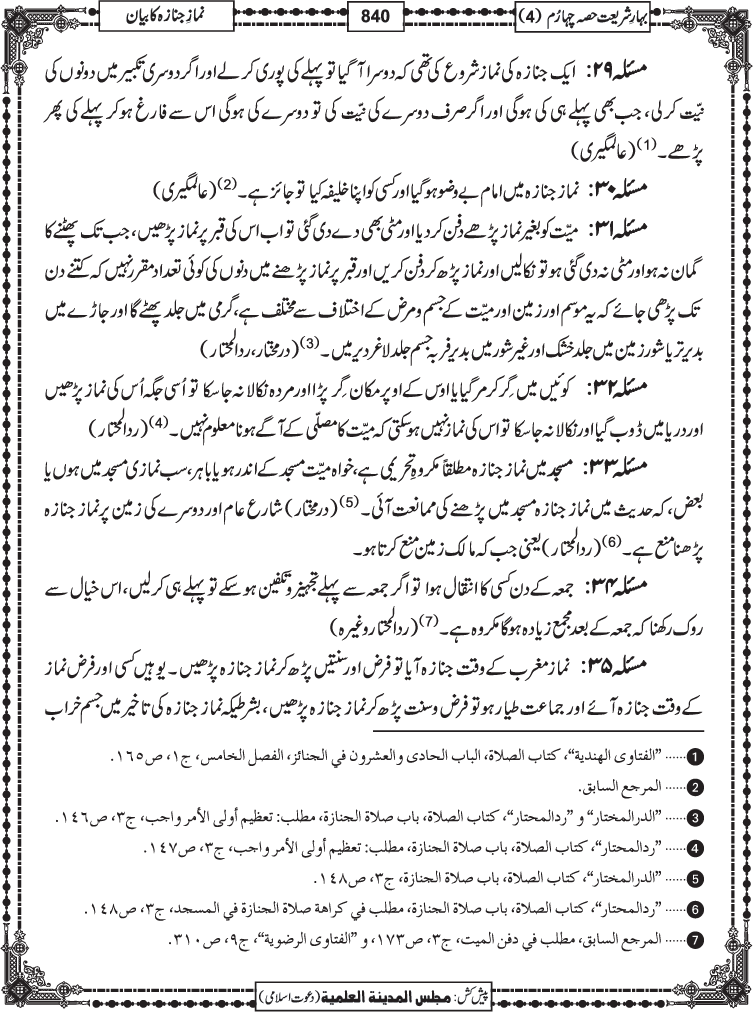 بہارِ شریعت حصہ چہارم (4)
840
نمازِ جنازہ کا بیان
مسئلہ ۲۹: ایک جنازہ کی نماز شروع کی تھی کہ دوسرا آگیا تو پہلے کی پوری کرلے اور اگر دوسری تکبیر میں دونوں کی
نیّت کرلی، جب بھی پہلے ہی کی ہوگی اور اگر صرف دوسرے کی نیّت کی تو دوسرے کی ہوگی اس سے فارغ ہوکر پہلے کی پھر
پڑھے۔(1) (عالمگیری)
مسئلہ ۳۰: نماز جنازہ میں امام بے وضو ہوگیا اور کسی کو اپنا خلیفہ کیا تو جائز ہے۔(2) (عالمگیری)
مسئلہ ۳۱: میّت کو بغیر نماز پڑھے دفن کردیا اور مٹی بھی دے دی گئی تو اب اس کی قبر پر نماز پڑھیں، جب تک پھٹنے کا
گمان نہ ہو اور مٹی نہ دی گئی ہو تو نکالیں اور نماز پڑھ کر دفن کریں اور قبر پر نماز پڑھنے میں دنوں کی کوئی تعداد مقرر نہیں کہ کتنے دن
تک پڑھی جائے کہ یہ موسم اور زمین اور میّت کے جسم و مرض کے اختلاف سے مختلف ہے، گرمی میں جلد پھٹے گا اور جاڑے میں
بدیر تر یا شور زمین میں جلد خشک اور غیر شور میں بدیر فربہ جسم جلد لاغر دیر میں۔(3) (درمختار، ردالمحتار)
مسئلہ ۳۲: کوئیں میں گِر کر مر گیا یا اوس کے اوپر مکان گِر پڑا اور مردہ نکالا نہ جاسکا تو اُسی جگہ اُس کی نماز پڑھیں
اور دریا میں ڈوب گیا اور نکالا نہ جاسکا تو اس کی نماز نہیں ہوسکتی کہ میّت کا مصلّی کے آگے ہونا معلوم نہیں۔(4) (ردالمحتار)
مسئلہ ۳۳: مسجد میں نماز جنازہ مطلقاً مکروہِ تحریمی ہے، خواہ میّت مسجد کے اندر ہو یا باہر، سب نمازی مسجد میں ہوں یا
بعض، کہ حدیث میں نماز جنازہ مسجد میں پڑھنے کی ممانعت آئی۔(5) (درمختار) شارع عام اور دوسرے کی زمین پر نماز جنازہ
پڑھنا منع ہے۔(6) (ردالمحتار) یعنی جب کہ مالک زمین منع کرتا ہو۔
مسئلہ ۳۴: جمعہ کے دن کسی کا انتقال ہوا تو اگر جمعہ سے پہلے تجہیز و تکفین ہوسکے تو پہلے ہی کرلیں، اس خیال سے
روک رکھنا کہ جمعہ کے بعد مجمع زیادہ ہوگا مکروہ ہے۔(7) (ردالمحتار وغیرہ)
مسئلہ ۳۵: نماز مغرب کے وقت جنازہ آیا تو فرض اور سنتیں پڑھ کر نماز جنازہ پڑھیں۔ یوہیں کسی اور فرض نماز
کے وقت جنازہ آئے اور جماعت طیار ہو تو فرض و سنت پڑھ کر نماز جنازہ پڑھیں، بشرطیکہ نماز جنازہ کی تاخیر میں جسم خراب
1 ...... ”الفتاوى الهندية“، كتاب الصلاة، الباب الحادى والعشرون في الجنائز، الفصل الخامس، ج١، ص١٦٥.
2 ...... المرجع السابق.
3 ...... ”الدرالمختار“ و ”ردالمحتار“، كتاب الصلاة، باب صلاة الجنازة، مطلب: تعظيم أولى الأمر واجب، ج٣، ص١٤٦.
4 ...... ”ردالمحتار“، كتاب الصلاة، باب صلاة الجنازة، مطلب: تعظيم أولى الأمر واجب، ج٣، ص١٤٧.
5 ...... ”الدرالمختار“، كتاب الصلاة، باب صلاة الجنازة، ج٣، ص١٤٨.
6 ...... ”ردالمحتار“، كتاب الصلاة، باب صلاة الجنازة، مطلب في كراهة صلاة الجنازة في المسجد، ج٣، ص١٤٨.
7 ...... المرجع السابق، مطلب في دفن الميت، ج٣، ص١٧٣، و ”الفتاوى الرضوية“، ج٩، ص٣١٠.
پیش کش: مجلس المدينة العلمية (دعوتِ اسلامی)